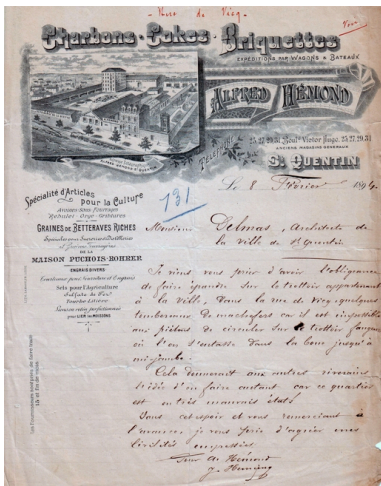 Rue de Vicq
Voir
Charbons · Cokes · Briquettes
EXPÉDITIONS PAR WAGONS & BATEAUX
ALFRED HÉMOND
25.27.29.31. Boulᵈ Victor Hugo. 25.27.29.31
ANCIENS MAGASINS GÉNÉRAUX
TÉLÉPHONE
Sᵗ QUENTIN
Le 8 Février 1894
131
Spécialité d'Articles
pour la Culture
GRAINES DE BETTERAVES RICHES
DE LA
MAISON PUCHOIS-ROHRER
ENGRAIS DIVERS
Sels pour l'Agriculture
Sulfate de Fer
Tourbe Litière
LIER les MOISSONS
Monsieur Delmas, Architecte
de la ville de Sᵗ Quentin
Je viens vous prier d'avoir l'obligeance
de faire épandre sur le trottoir appartenant
à la ville, dans la rue de Vicq, quelques
tombereaux de machefers car il est impossible
aux piétons de circuler sur le trottoir
où l'on s'enfonce dans la boue jusqu'à
mi-jambe.
Cela donnerait aux autres riverains
l'idée d'en faire autant car ce quartier
est en très mauvais état
Dans cet espoir et vous remerciant à
l'avance, je vous prie d'agréer mes
civilités empressées
Pour A. Hémond